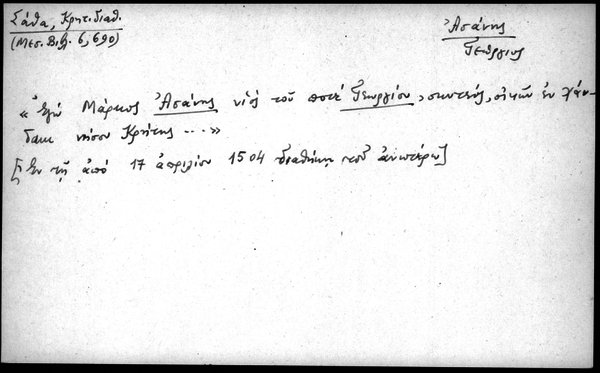 Σάθα, Κρητ. διαθ.
(Μεσ. Βιβ. 6, 690)
Ἀσάνης
Γεώργιος
« Ἐγὼ Μάρκος Ἀσάνης υἱὸς τοῦ ποτὲ Γεωργίου, σκυτεύς, οἰκῶν ἐν Χάν-
δακι νήσου Κρήτης ... »
[Ἐν τῇ ἀπό 17 ἀπριλίου 1504 διαθήκῃ τοῦ ἀνωτέρω]